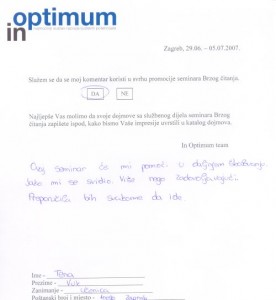 in optimum
Zagreb, 29.06. – 05.07.2007.
Slažem se da se moj komentar koristi u svrhu promocije seminara Brzog čitanja.
DA NE
Najljepše Vas molimo da svoje dojmove sa službenog dijela seminara Brzog
čitanja zapišete ispod, kako bismo Vaše impresije uvrstili u katalog dojmova.
In Optimum team
Ovaj seminar će mi pomoći u daljnjem školovanju.
Jako mi se sviđa. Više nego zadovoljavajući.
Preporučila bih svakome da ide.
Ime -
Prezime - Vuk
Zanimanje - učenica
Poštanski broj i mjesto - Zagreb